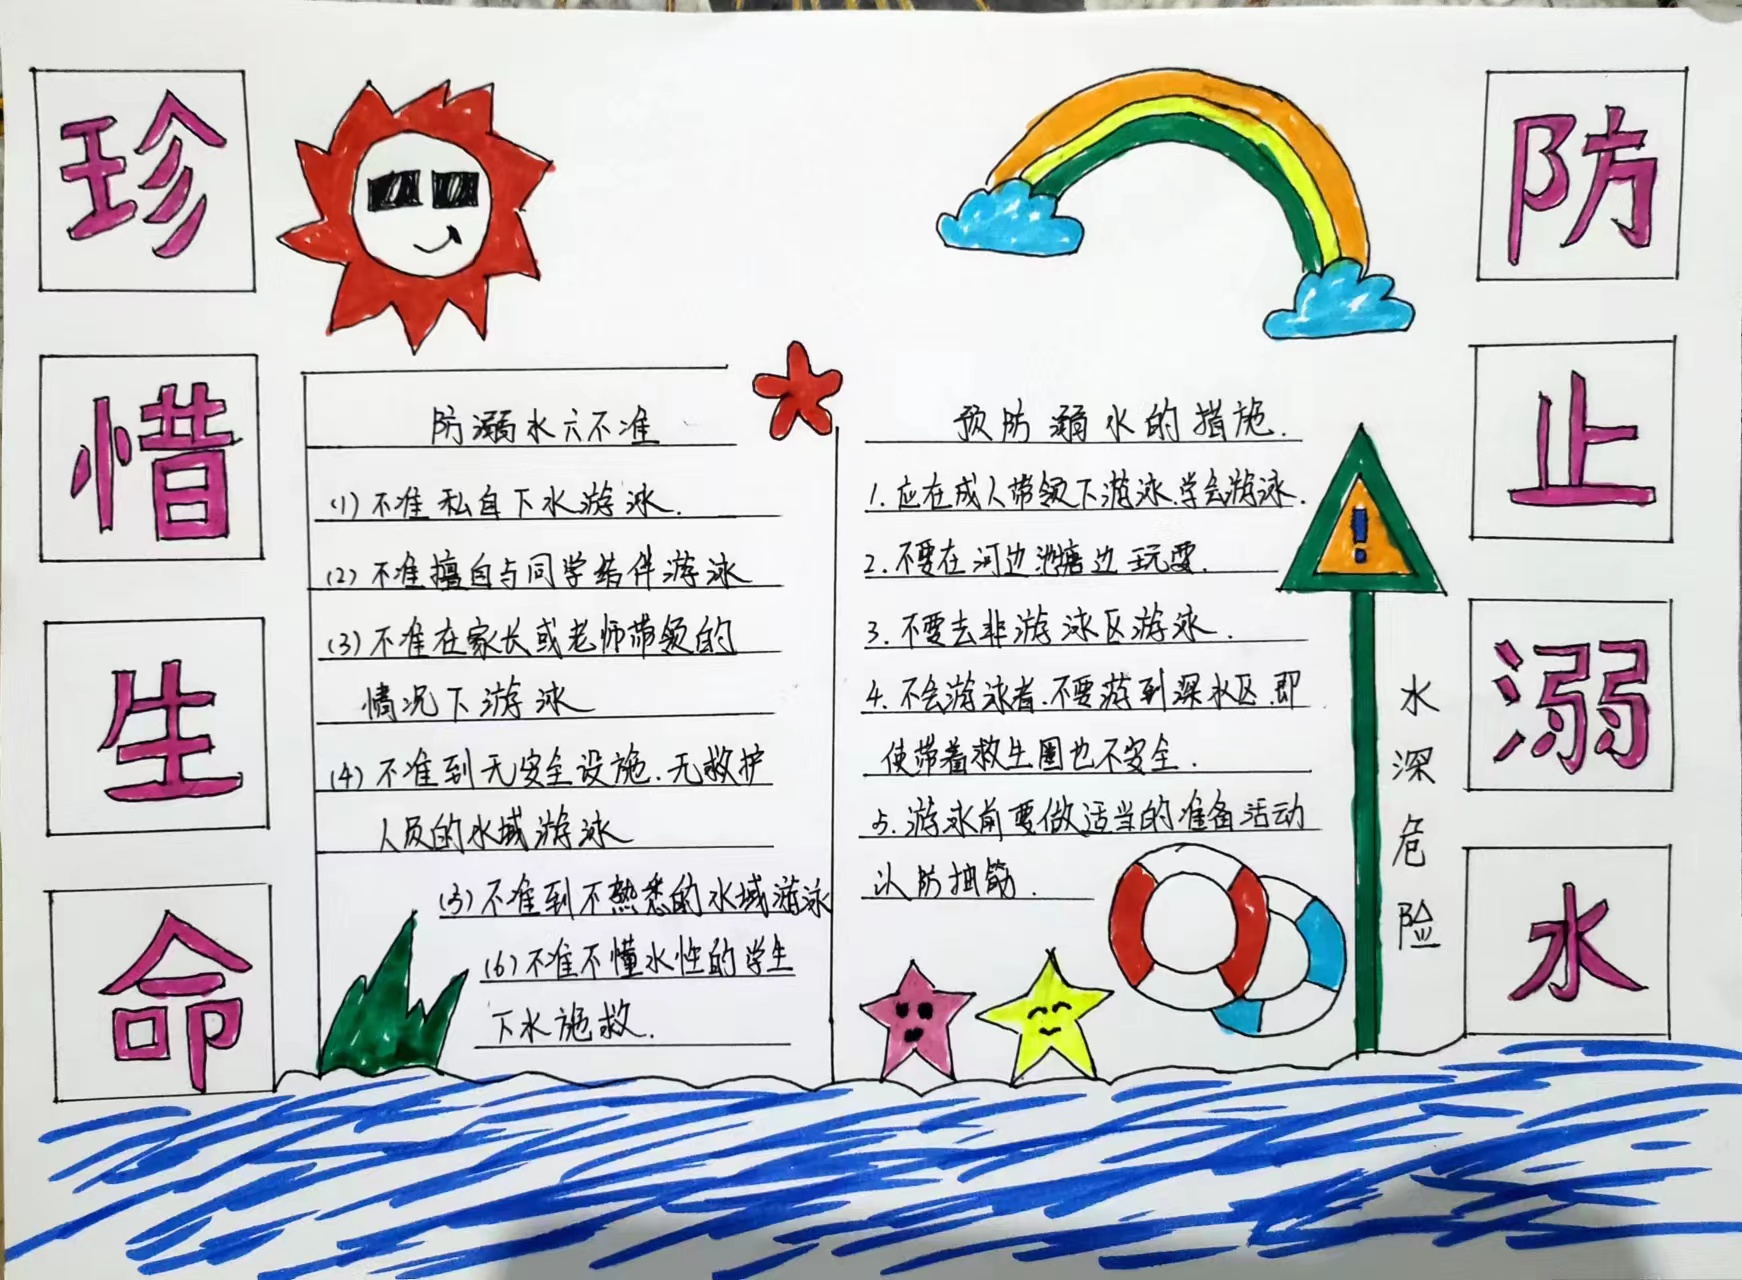 珍惜生命
防止溺水
防溺水六不准
(1)不准私自下水游泳.
(2)不准擅自与同学结伴游泳
(3)不准在家长或老师带领的
情况下游泳
(4)不准到无安全设施.无救护
人员的水域游泳
(5)不准到不熟悉的水域游泳
(6)不准不懂水性的学生
下水施救.
预防溺水的措施.
1.应在成人带领下游泳.学会游泳.
2.不要在河边池塘边玩耍.
3.不要去非游泳区游泳.
4.不会游泳者.不要游到深水区.即
使带着救生圈也不安全.
5.游泳前要做适当的准备活动
以防抽筋.
!
水深危险